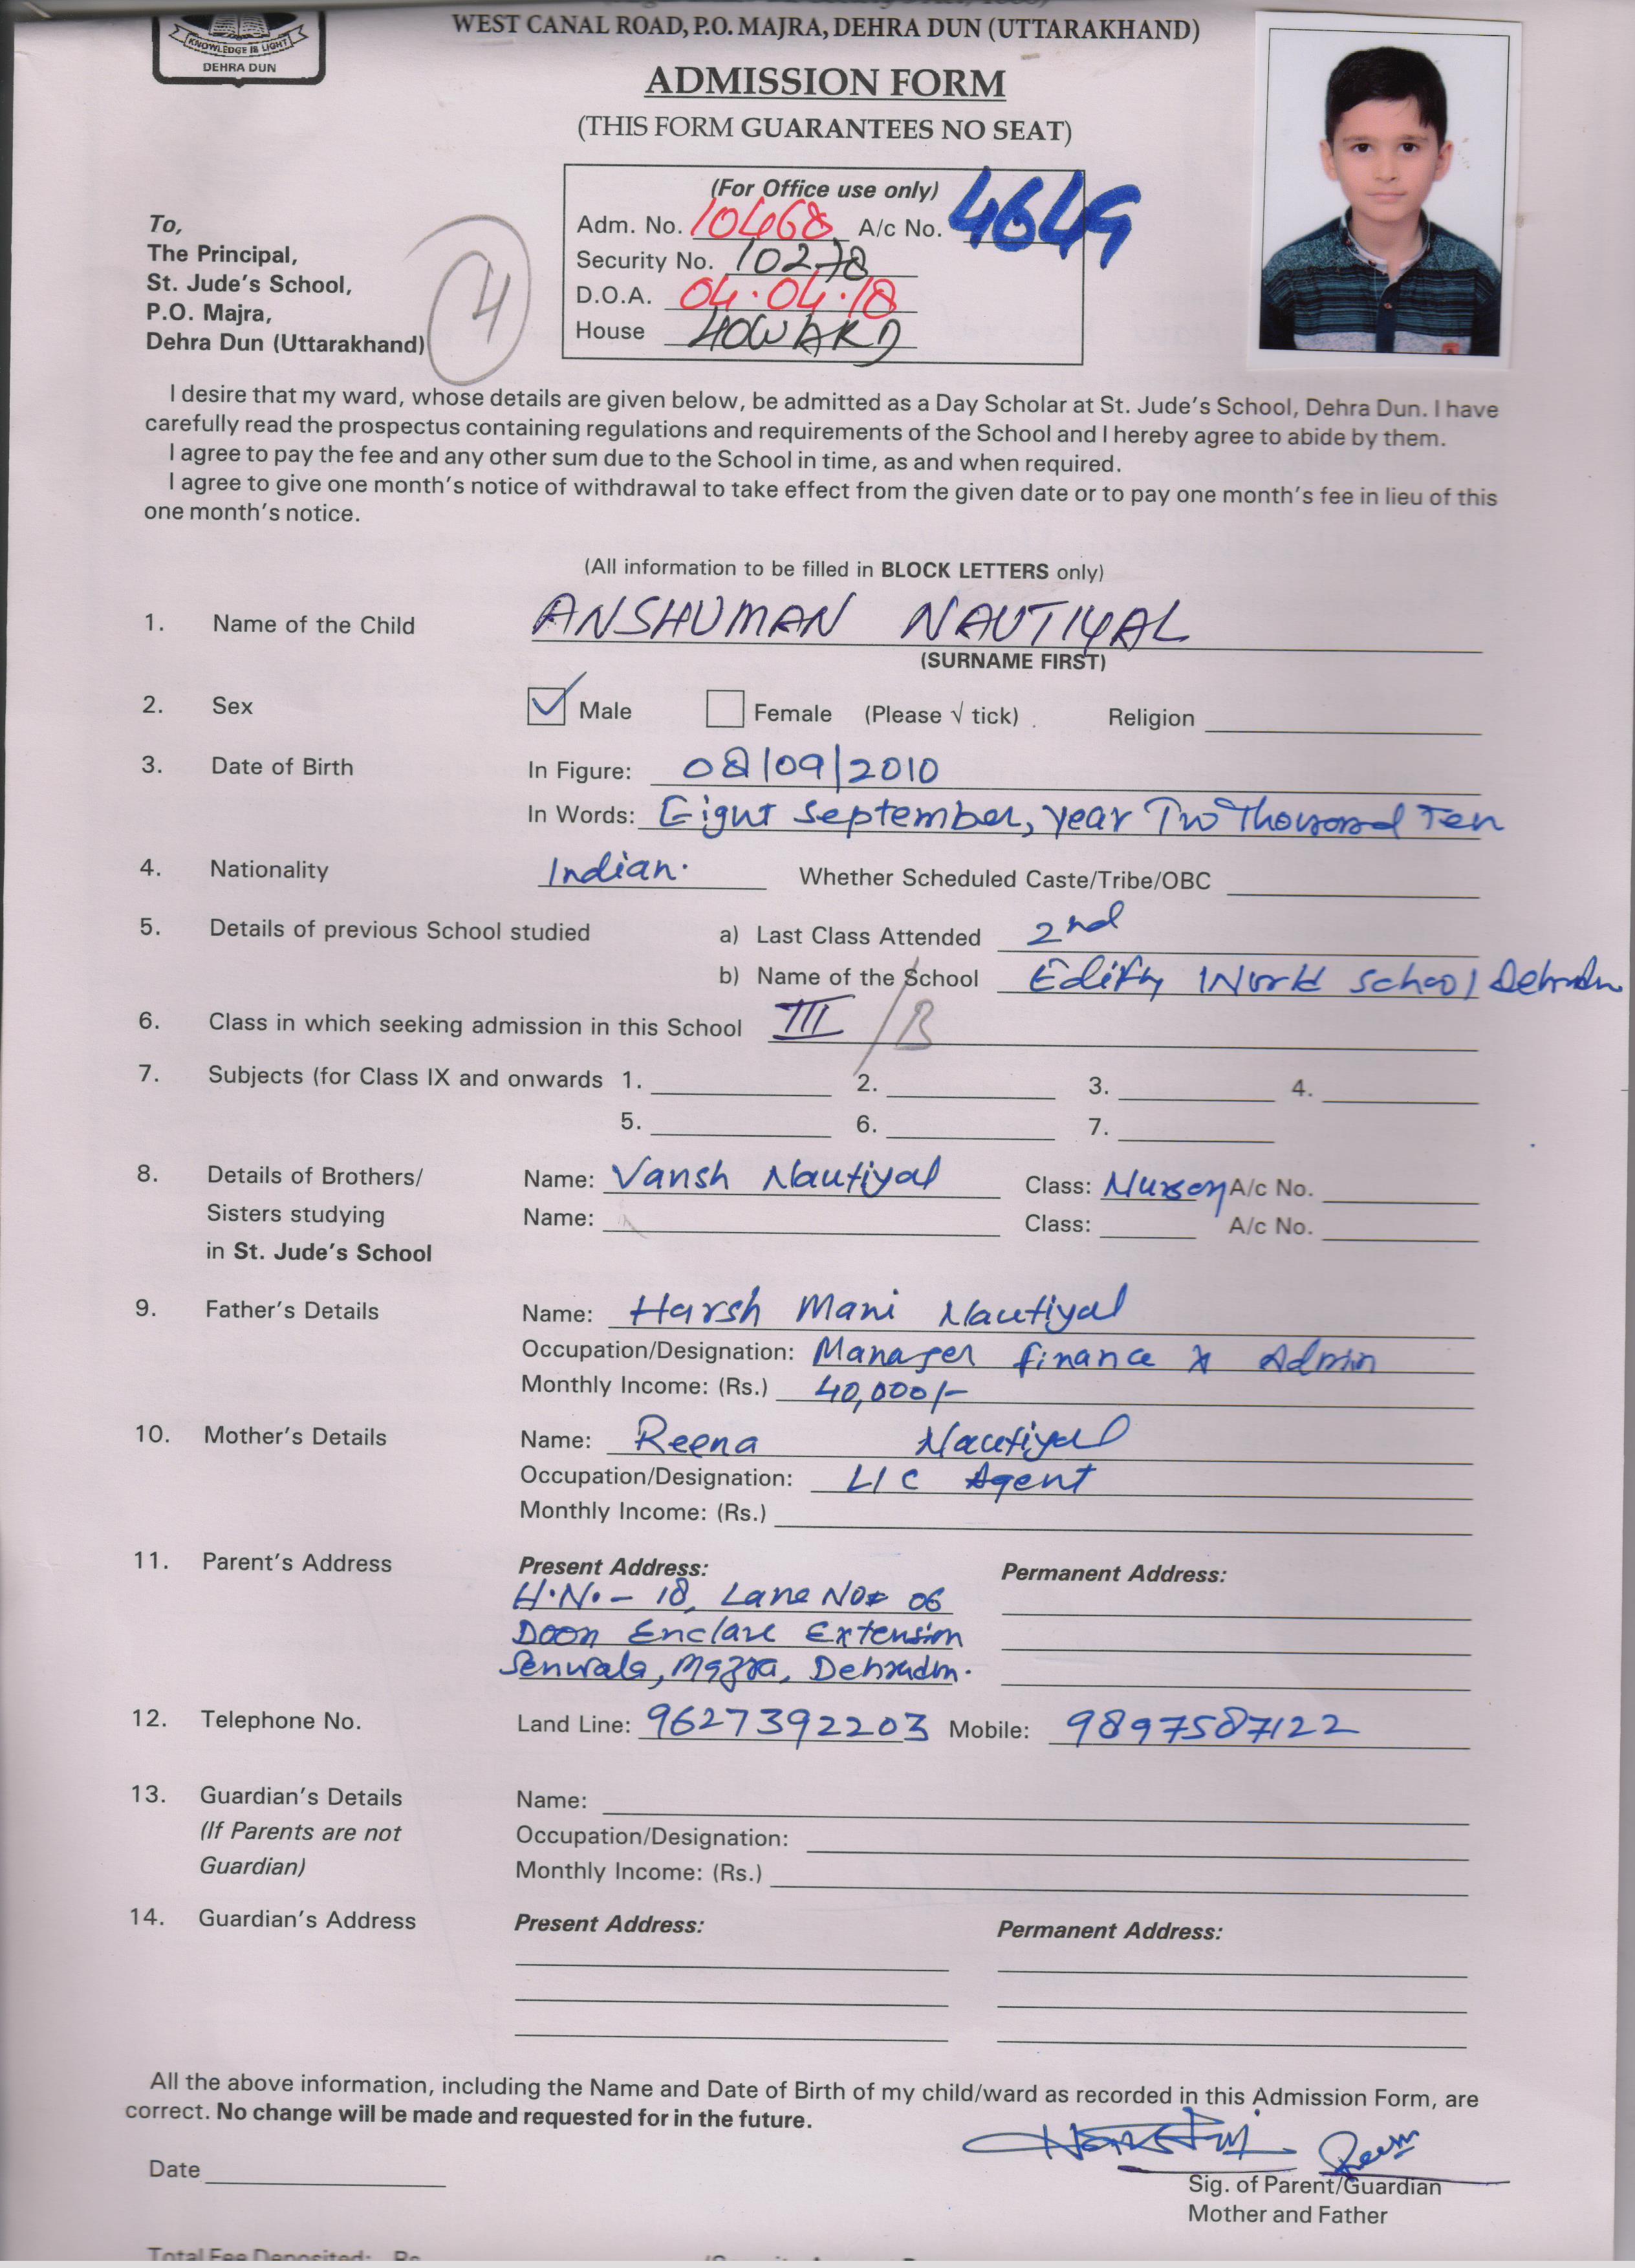 KNOWLEDGE IS LIGHT
DEHRA DUN
WEST CANAL ROAD, P.O. MAJRA, DEHRA DUN (UTTARAKHAND)
ADMISSION FORM
(THIS FORM GUARANTEES NO SEAT)
(For Office use only)
Adm. No. 10468 A/c No. 4649
Security No. 10278
D.O.A. 04.04.18
House HOWARD
To,
The Principal,
St. Jude's School,
P.O. Majra,
Dehra Dun (Uttarakhand)
4
I desire that my ward, whose details are given below, be admitted as a Day Scholar at St. Jude's School, Dehra Dun. I have
carefully read the prospectus containing regulations and requirements of the School and I hereby agree to abide by them.
I agree to pay the fee and any other sum due to the School in time, as and when required.
I agree to give one month's notice of withdrawal to take effect from the given date or to pay one month's fee in lieu of this
one month's notice.
(All information to be filled in BLOCK LETTERS only)
1. Name of the Child ANSHUMAN NAUTIYAL
(SURNAME FIRST)
2. Sex Male Female (Please √ tick) . Religion
3. Date of Birth In Figure: 08/09/2010
In Words: Eight September, year Two Thousand Ten
4. Nationality Indian. Whether Scheduled Caste/Tribe/OBC
5. Details of previous School studied a) Last Class Attended 2nd
b) Name of the School Edify World School Dehradun
6. Class in which seeking admission in this School III / B
7. Subjects (for Class IX and onwards 1. 2. 3. 4.
5. 6. 7.
8. Details of Brothers/ Name: Vansh Nautiyal Class: Nursery A/c No.
Sisters studying Name: Class: A/c No.
in St. Jude's School
9. Father's Details Name: Harsh Mani Nautiyal
Occupation/Designation: Manager finance & Admin
Monthly Income: (Rs.) 40,000/-
10. Mother's Details Name: Reena Nautiyal
Occupation/Designation: LIC Agent
Monthly Income: (Rs.)
11. Parent's Address Present Address: Permanent Address:
H.N. - 18, Lane No 06
Doon Enclave Extension
Majra, Dehradun.
12. Telephone No. Land Line: 9627392203 Mobile: 9897587122
13. Guardian's Details Name:
(If Parents are not Occupation/Designation:
Guardian) Monthly Income: (Rs.)
14. Guardian's Address Present Address: Permanent Address:
All the above information, including the Name and Date of Birth of my child/ward as recorded in this Admission Form, are
correct. No change will be made and requested for in the future.
Reena
Date
Sig. of Parent/Guardian
Mother and Father
Total Fee Deposited: Rs